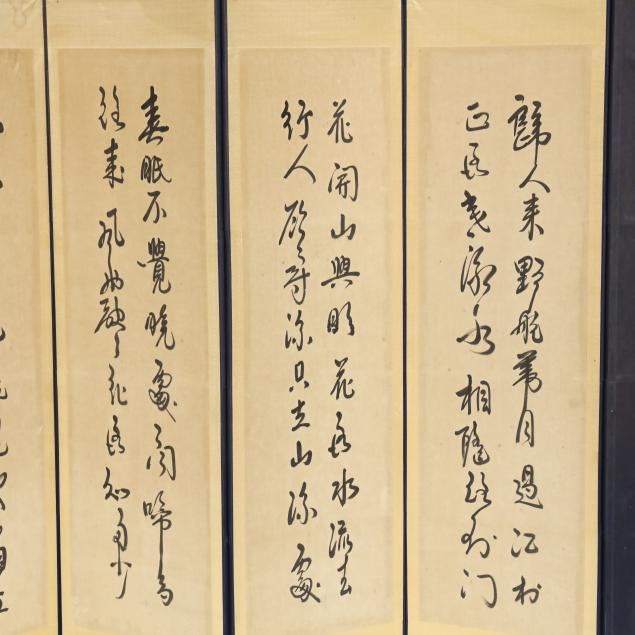 歸人乘野艇帶月過江村
正落寒潮水相隨夜到門
花開山與明花落水流去
行人欲尋源只在山深處
春眠不覺曉處々聞啼鳥
夜來風雨聲花落知多少